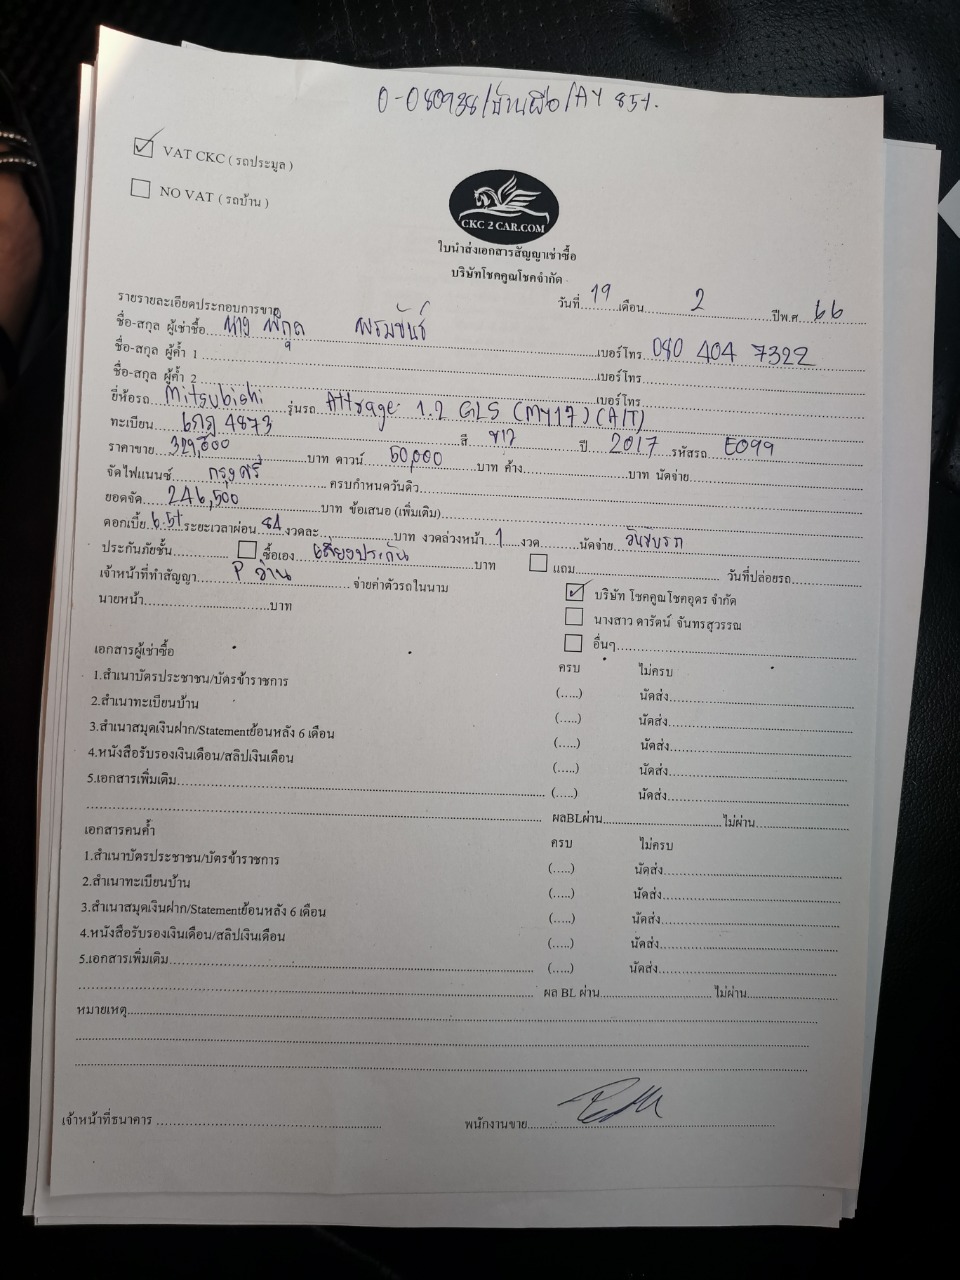 0-080938/บ้านผือ/AY 85%.
VAT CKC ( รถประมูล )
NO VAT ( รถบ้าน )
CKC 2 CAR.COM
ใบนำส่งเอกสารสัญญาเช่าซื้อ
บริษัทโชคคูณโชคจำกัด
วันที่ 19 เดือน 2 ปีพ.ศ 66
รายรายละเอียดประกอบการขาย
ชื่อ-สกุล ผู้เช่าซื้อ นาง พิกุล พรมขันธ์ เบอร์โทร 080 404 7322
ชื่อ-สกุล ผู้ค้ำ 1 เบอร์โทร
ชื่อ-สกุล ผู้ค้ำ 2 เบอร์โทร
ยี่ห้อรถ Mitsubishi รุ่นรถ Attrage 1.2 GLS (MY17) (A/T)
ทะเบียน 4873 สี ขาว ปี 2017 รหัสรถ E099
ราคาขาย 329,000 บาท ดาวน์ 50,000 บาท ค้าง บาท นัดจ่าย
จัดไฟแนนซ์ กรุงศรี ครบกำหนดวันดิว
ยอดจัด 246,500 บาท ข้อเสนอ (เพิ่มเติม)
ดอกเบี้ย 6.5% ระยะเวลาผ่อน 84 งวดละ บาท งวดล่วงหน้า 1 งวด นัดจ่าย วันรับรถ
ประกันภัยชั้น ซื้อเอง เลี่ยงประกัน บาท แถม วันที่ปล่อยรถ
เจ้าหน้าที่ทำสัญญา P อ่าน จ่ายค่าตัวรถในนาม บริษัท โชคคูณโชคอุดร จำกัด
นายหน้า บาท นางสาว ดารัตน์ จันทรสุวรรณ
อื่นๆ
เอกสารผู้เช่าซื้อ ครบ ไม่ครบ
1.สำเนาบัตรประชาชน/บัตรข้าราชการ (.....) นัดส่ง
2.สำเนาทะเบียนบ้าน (.....) นัดส่ง
3.สำเนาสมุดเงินฝาก/Statementย้อนหลัง 6 เดือน (.....) นัดส่ง
4.หนังสือรับรองเงินเดือน/สลิปเงินเดือน (.....) นัดส่ง
5.เอกสารเพิ่มเติม (.....) นัดส่ง
ผลBLผ่าน ไม่ผ่าน
เอกสารคนค้ำ ครบ ไม่ครบ
1.สำเนาบัตรประชาชน/บัตรข้าราชการ (.....) นัดส่ง
2.สำเนาทะเบียนบ้าน (.....) นัดส่ง
3.สำเนาสมุดเงินฝาก/Statementย้อนหลัง 6 เดือน (.....) นัดส่ง
4.หนังสือรับรองเงินเดือน/สลิปเงินเดือน (.....) นัดส่ง
5.เอกสารเพิ่มเติม (.....) นัดส่ง
ผล BL ผ่าน ไม่ผ่าน
หมายเหตุ
เจ้าหน้าที่ธนาคาร พนักงานขาย